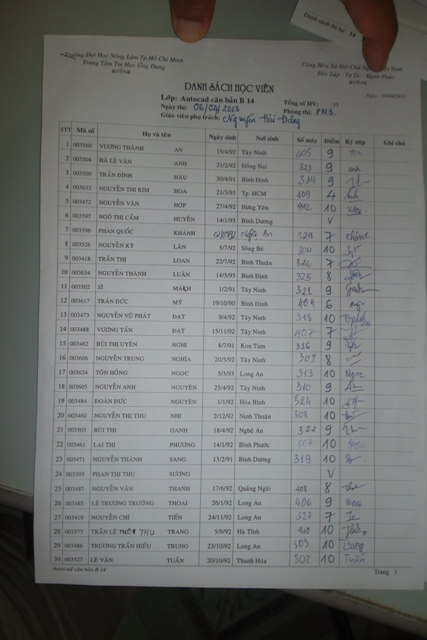 Danh sách dự thi 14
Trường Đại Học Nông Lâm Tp.Hồ Chí Minh
Trung Tâm Tin Học Ứng Dụng
Cộng Hòa Xã Hội Chủ Nghĩa Việt Nam
Độc Lập - Tự Do - Hạnh Phúc
DANH SÁCH HỌC VIÊN
Lớp: Autocad căn bản B 14
Tổng số HV: 33
Ngày thi: 06/04/2013
Phòng thi: PM3
Giáo viên phụ trách: Nguyễn Hải Đăng
STT Mã số Họ và tên Ngày sinh Nơi sinh Số máy Điểm Ký nộp Ghi chú
1 003500 VƯƠNG THÀNH AN 15/4/92 Tây Ninh 405 9
2 003504 HÀ LÊ VÂN ANH 21/2/92 Đồng Nai 323 9 anh
3 003506 TRẦN ĐÌNH HẬU 30/4/91 Bình Định 314 9
4 003633 NGUYỄN THỊ KIM HOA 21/3/93 Tp. HCM 409 4
5 003472 NGUYỄN VĂN HỢP 27/4/92 Hưng Yên 10
6 003597 NGÔ THỊ CẨM HUYỀN 14/1/93 Bình Dương V
7 003596 PHAN QUỐC KHÁNH Nghệ An 329 7
8 003526 NGUYỄN KỲ LÂN 5/7/92 Sông Bé 304 10
9 003418 TRẦN THỊ LOAN 22/7/92 Bình Thuận 326 7
10 003634 NGUYỄN THÀNH LUÂN 14/3/93 Bình Định 325 8
11 003502 SĨ 1/2/91 Tây Ninh 321 9
12 003617 TRẦN ĐỨC MỸ 19/10/90 Bình Định 404 6
13 003473 NGUYỄN VŨ PHÁT ĐẠT 9/4/92 Tây Ninh 318 10
14 003488 VƯƠNG TẤN ĐẠT 15/11/92 Tây Ninh 407 7
15 003462 BÙI THỊ UYÊN NGHI 8/7/91 Kon Tum 316 9
16 003606 NGUYỄN TRUNG NGHĨA 20/3/92 Tây Ninh 309 8
17 003624 TÔN HỒNG NGỌC 5/3/93 Long An 313 10 Ngọc
18 003605 NGUYỄN ANH NGUYÊN 23/4/92 Tây Ninh 310 9
19 003484 ĐOÀN ĐỨC NGUYÊN 1/1/92 Hòa Bình 324 10
20 003460 NGUYỄN THỊ THU NHI 2/12/92 Ninh Thuận 308 10
21 003503 BÙI THỊ OANH 18/4/92 Nghệ An 322 9
22 003461 LẠI THỊ PHƯƠNG 14/1/92 Bình Phước 307 10
23 003471 NGUYỄN THÀNH SANG 13/2/91 Bình Dương 319 10
24 003595 PHAN THỊ THU SƯƠNG V
25 003487 NGUYỄN VĂN THANH 17/6/92 Quảng Ngãi 408 8
26 003485 LÊ TRƯƠNG TRƯỜNG THOẠI 26/1/92 Long An 406 9
27 003419 NGUYỄN CHÍ TIẾN 24/11/92 Long An 327 7
28 003577 TRẦN LÊ THU TRANG 5/9/92 Hà Tĩnh 10
29 003466 TRƯƠNG TRẦN HIẾU TRUNG 23/10/92 Long An 303 10 Trung
30 003527 LÊ VĂN TUẤN 20/10/92 Thanh Hóa 302 10 Tuấn
Autocad căn bản B 14 Trang 1